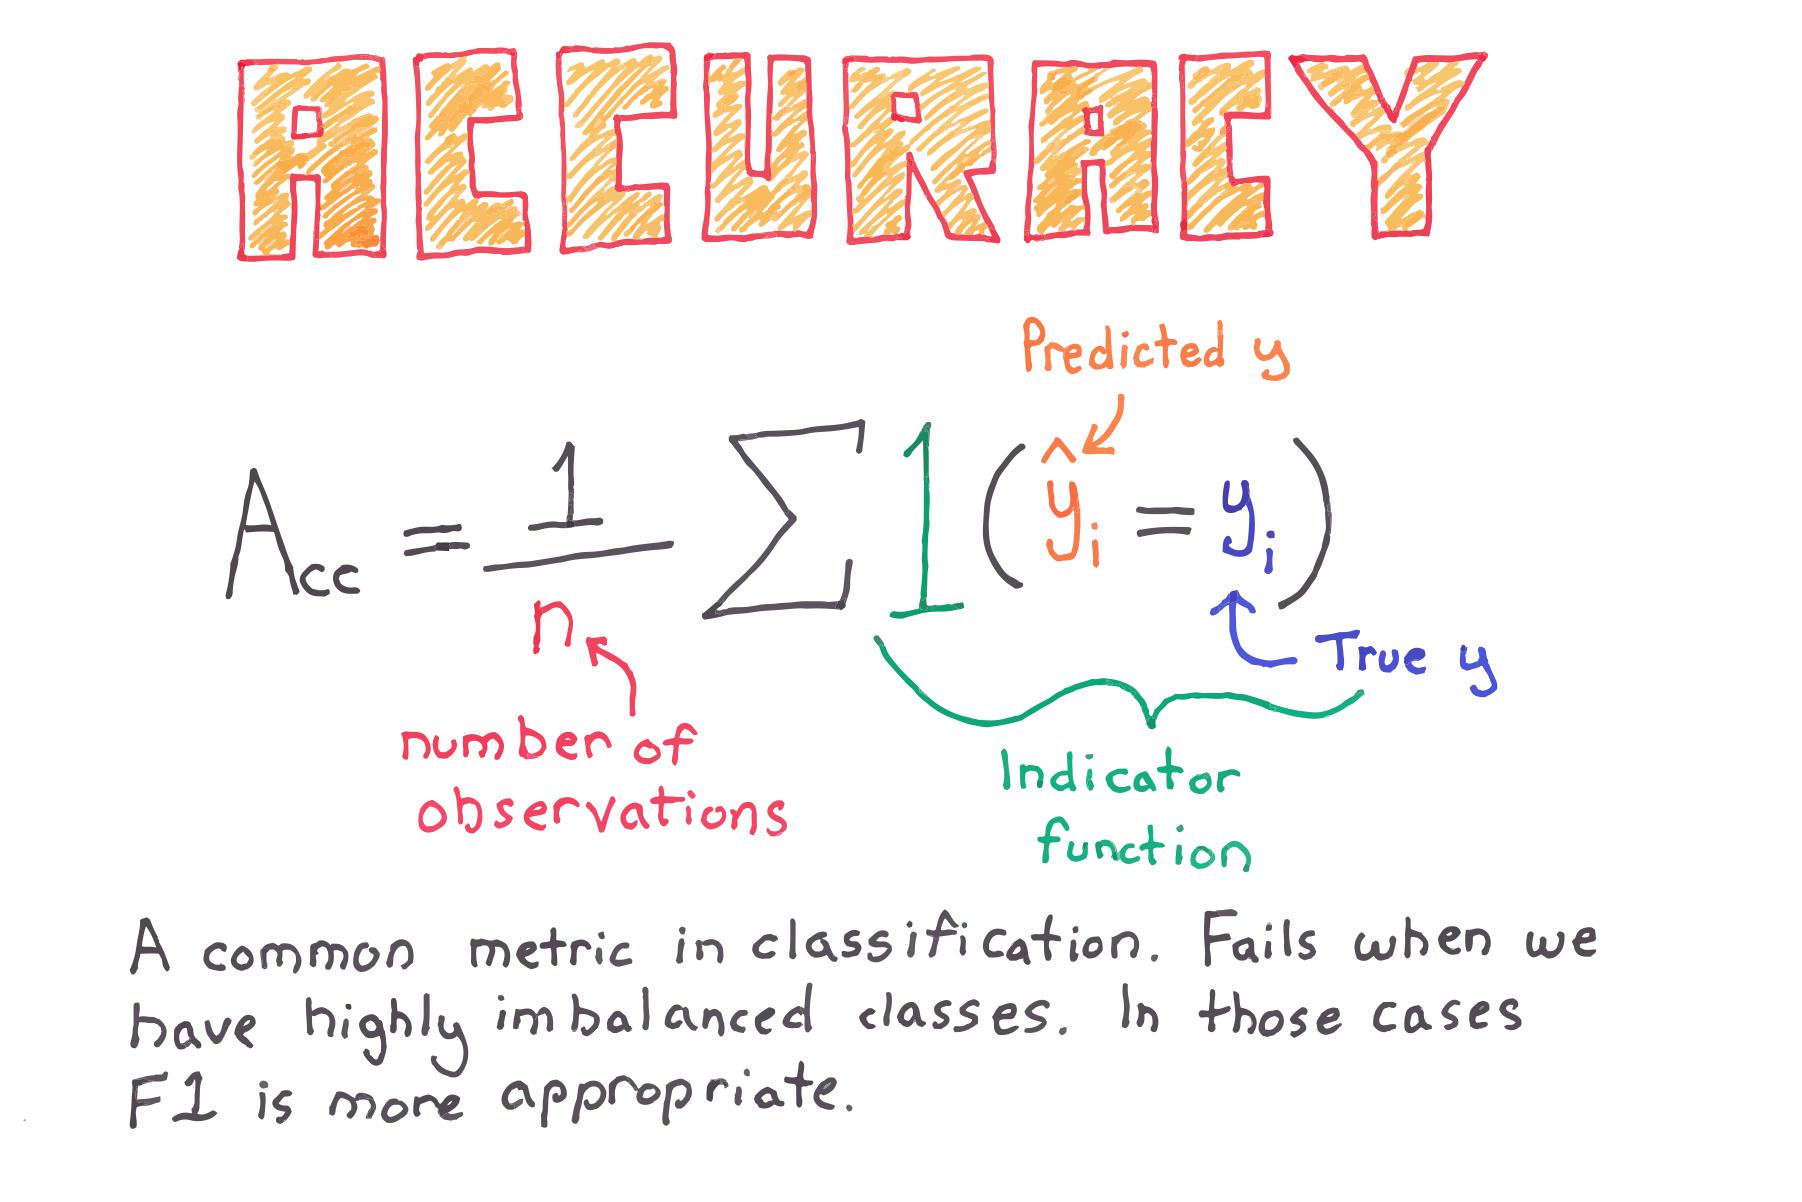 ACCURACY
Predicted y
Acc = 1/n Σ 1(ŷᵢ = yᵢ)
True y
number of
observations
Indicator
function
A common metric in classification. Fails when we
have highly imbalanced classes. In those cases
F1 is more appropriate.